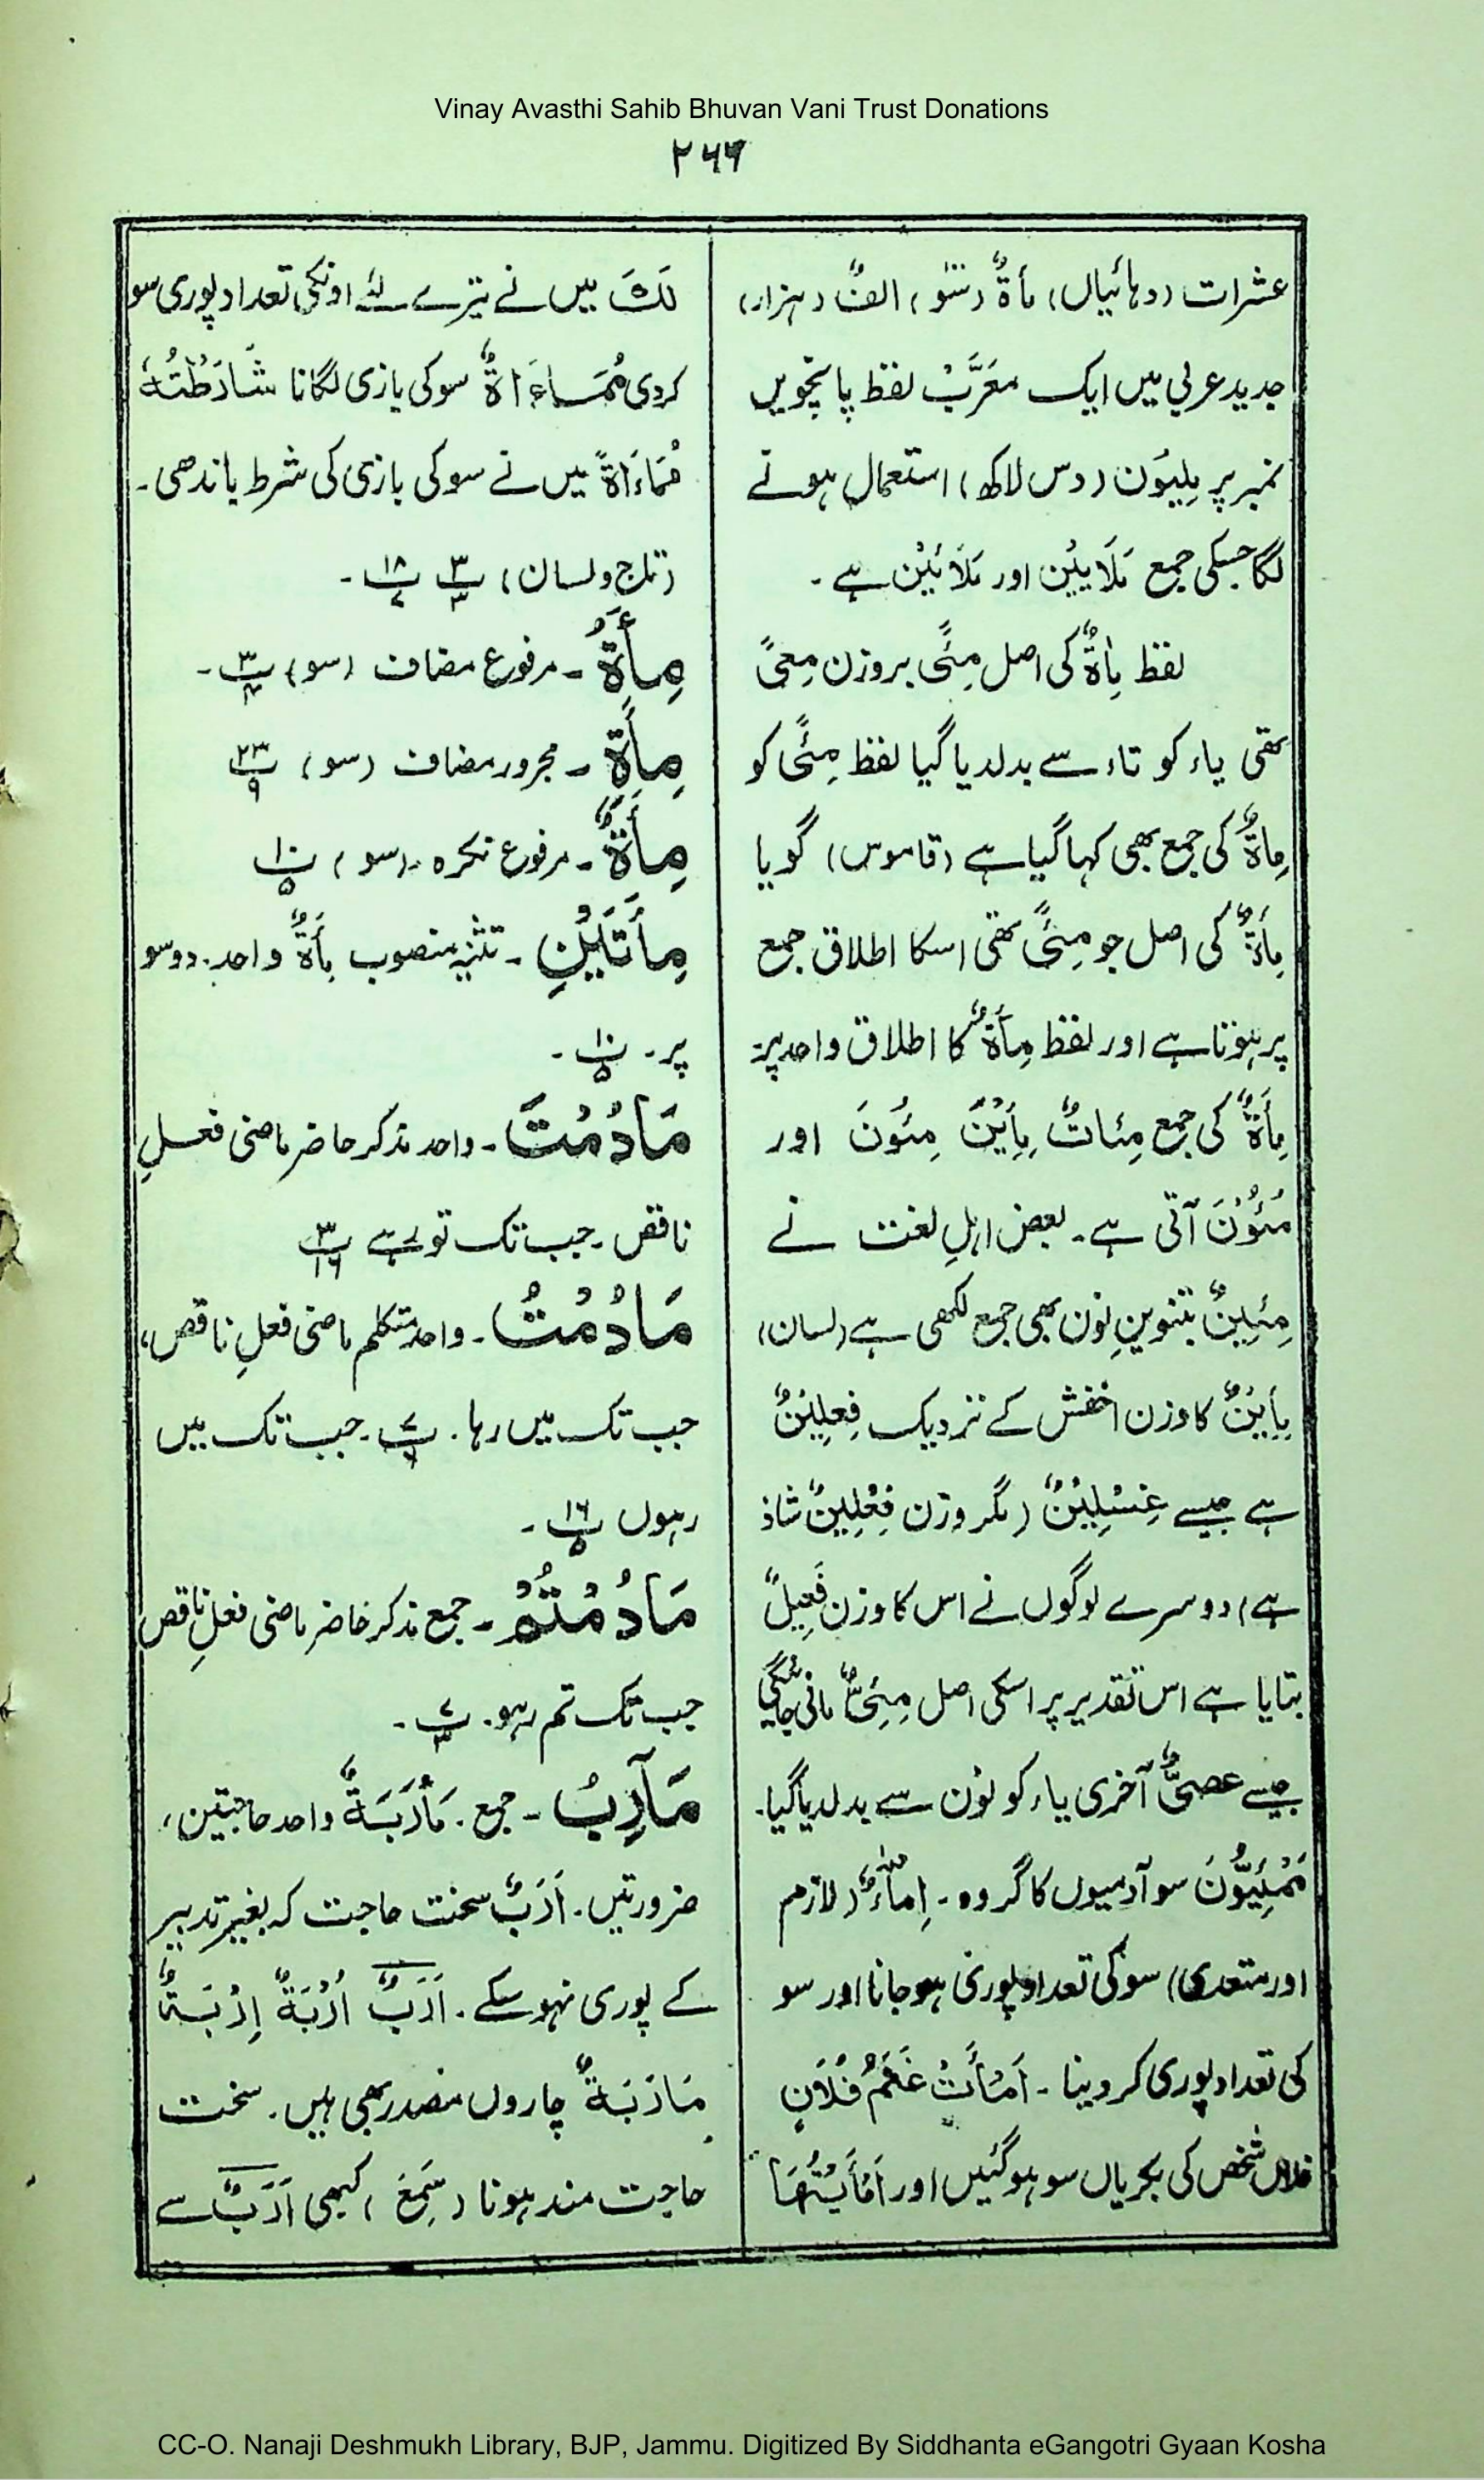 Vinay Avasthi Sahib Bhuvan Vani Trust Donations
۲۶۶
عشرات (دہائیاں) مأةٌ (سَو) الفٌ (ہزار)
جدید عربی میں ایک معَرَّبْ لفظ پانچویں
نمبر پر مِلیوَن (دس لاکھ) استعمال ہونے
لگا جسکی جمع مَلَایِیْن اور مَلَائِیْن ہے ۔
لفظ مِاةٌ کی اصل مِئًی بروزن مِعیً
تھی یاء کو تاء سے بدلدیا گیا لفظ مِئًی کو
مِاةٌ کی جمع بھی کہا گیا ہے (قاموس) گویا
مِأَةٌ کی اصل جو مِئًی تھی اسکا اطلاق جمع
پر ہوتا ہے اور لفظ مِأَةٌ کا اطلاق واحد پر
مِأَةٌ کی جمع مِئاتٌ مِأِیْنَ مِئوَنَ اور
مُئوُنَ آتی ہے ۔ بعض اہلِ لغت نے
مِئِینٌ بتنوینِ نون بھی جمع لکھی ہے (لسان)
مِأِیْنٌ کا وزن اخفش کے نزدیک فِعلِیْنٌ
ہے جیسے غِسْلِیْنٌ (مگر وزن فِعْلِیْنٌ شاذ
ہے) دوسرے لوگوں نے اس کا وزن فَعِیلٌ
بتایا ہے اس تقدیر پر اسکی اصل مِئِیٌّ مانی جائیگی
جیسے عصیٌّ آخری یاء کو نون سے بدلدیا گیا۔
سو آدمیوں کا گروہ ۔ اِمآءٌ (لازم
اور متعدی) سو کی تعداد پوری ہو جانا اور سو
کی تعداد پوری کر دینا ۔ اَمْأَتْ غَنَمُ فُلَانٍ
فلاں شخص کی بکریاں سو ہو گئیں اور اَمْأَیْتُهَا
لَكَ میں نے تیرے لئے اونکی تعداد پوری سو
کردی مُمَاءَاةٌ سو کی بازی لگانا شَارَطْتُهُ
مُمَاءَاةً میں نے سو کی بازی کی شرط باندھی ۔
(تاج و لسان) پ۳/۳ پ۱۸/۷ ۔
مِأَةُ ۔ مرفوع مضاف (سو) پ۳ ۔
مِأَةِ ۔ مجرور مضاف (سو) پ۲۳/۹
مِأَةٌ ۔ مرفوع نکرہ ۔ (سو) پ۱۰/۵
مِأَتَیْنِ ۔ تثنیہ منصوب مِأَةٌ واحد ۔ دو سو
پر ۔ پ۱۰/۵ ۔
مَادُمْتَ ۔ واحد مذکر حاضر ماضی فعلِ
ناقص ۔ جب تک تو رہے پ۳/۱۶
مَادُمْتُ ۔ واحد متکلم ماضی فعلِ ناقص،
جب تک میں رہا ۔ پ۷/۶ ۔ جب تک میں
رہوں پ۱۶/۵ ۔
مَادُمْتُمْ ۔ جمع مذکر حاضر ماضی فعلِ ناقص
جب تک تم رہو ۔ پ۷/۳ ۔
مَآرِبُ ۔ جمع ۔ مَأْرَبَةٌ واحد حاجتیں،
ضرورتیں ۔ اَرَبٌ سخت حاجت کہ بغیر تدبیر
کے پوری نہو سکے ۔ اَرَبٌ اُرْبَةٌ اِرْبَةٌ
مَأرَبَةٌ چاروں مصدر بھی ہیں ۔ سخت
حاجت مند ہونا (سَمِعَ) کبھی اَرَبٌ سے
CC-O. Nanaji Deshmukh Library, BJP, Jammu. Digitized By Siddhanta eGangotri Gyaan Kosha